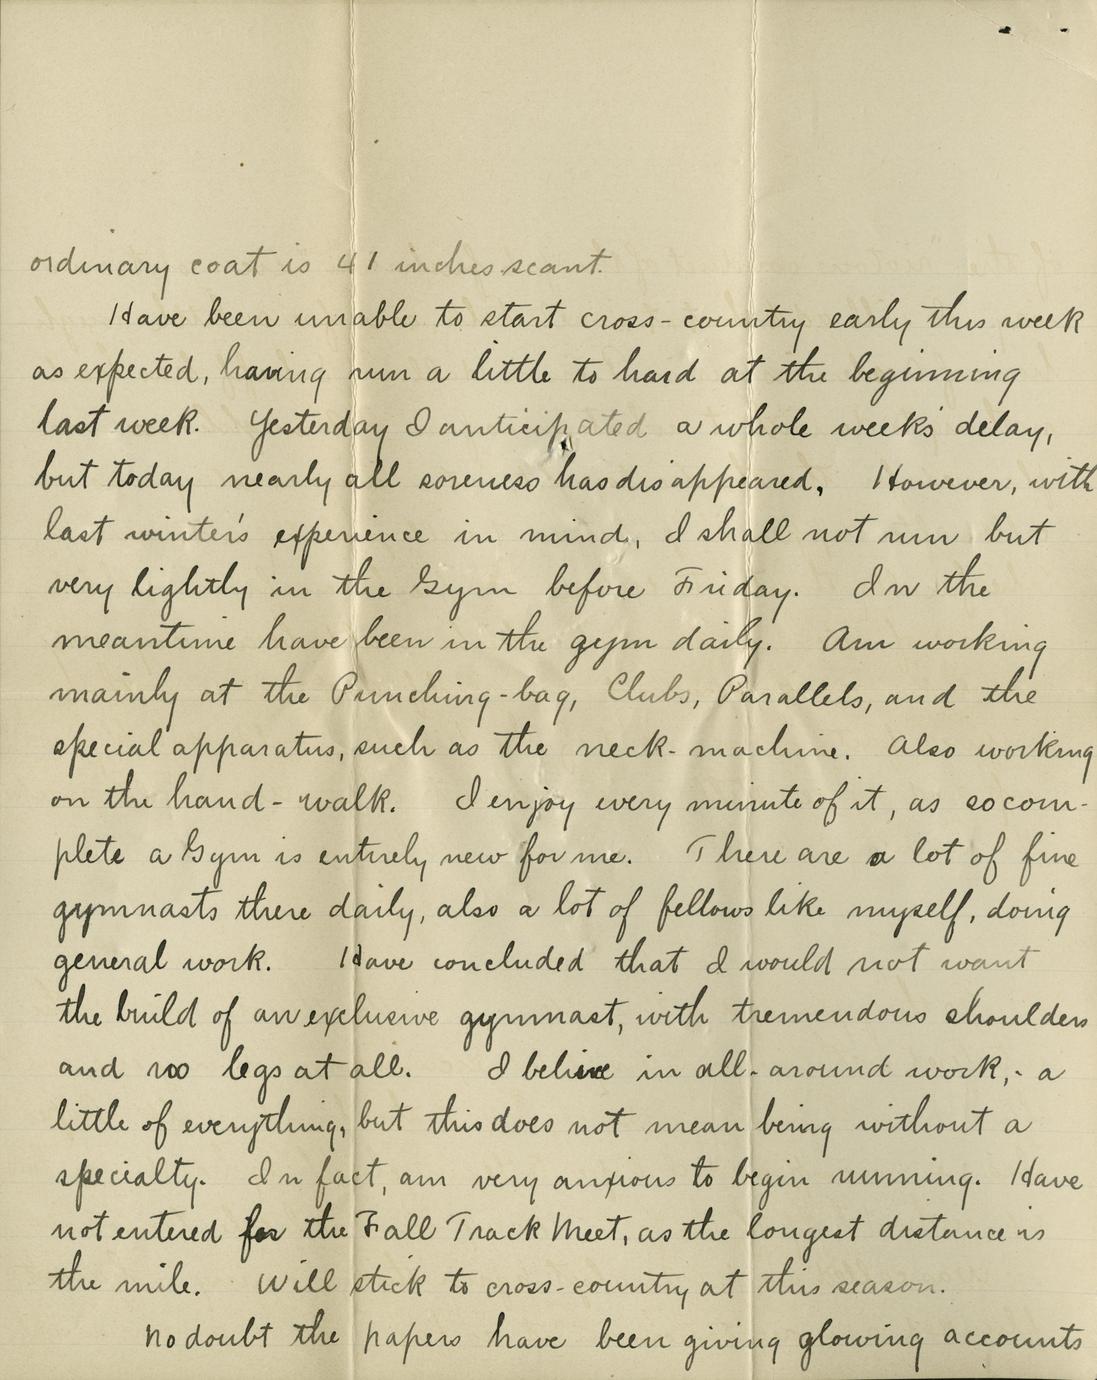 ordinary coat is 41 inches scant.
Have been unable to start cross-country early this week
as expected, having run a little to hard at the beginning
last week. Yesterday I anticipated a whole week's delay,
but today nearly all soreness has disappeared. However, with
last winter's experience in mind, I shall not run but
very lightly in the Gym before Friday. In the
meantime have been in the gym daily. Am working
mainly at the Punching-bag, Clubs, Parallels, and the
special apparatus, such as the neck-machine. Also working
on the hand-walk. I enjoy every minute of it, as so com-
plete a Gym is entirely new for me. There are a lot of fine
gymnasts there daily, also a lot of fellows like myself, doing
general work. Have concluded that I would not want
the build of an exclusive gymnast, with tremendous shoulders
and no legs at all. I believe in all-around work,- a
little of everything, but this does not mean being without a
specialty. In fact, am very anxious to begin running. Have
not entered for the Fall Track Meet, as the longest distance is
the mile. Will stick to cross-country at this season.
No doubt the papers have been giving glowing accounts